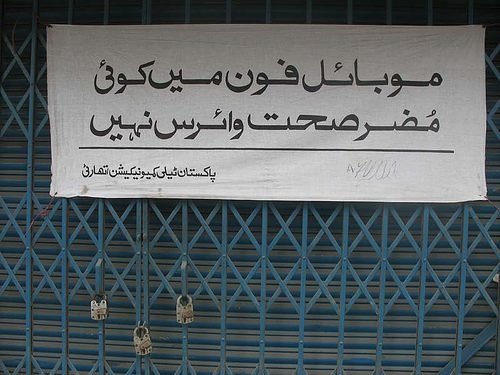 موبائل فون میں کوئی
مُضر صحت وائرس نہیں
پاکستان ٹیلی کمیونیکیشن اتھارٹی